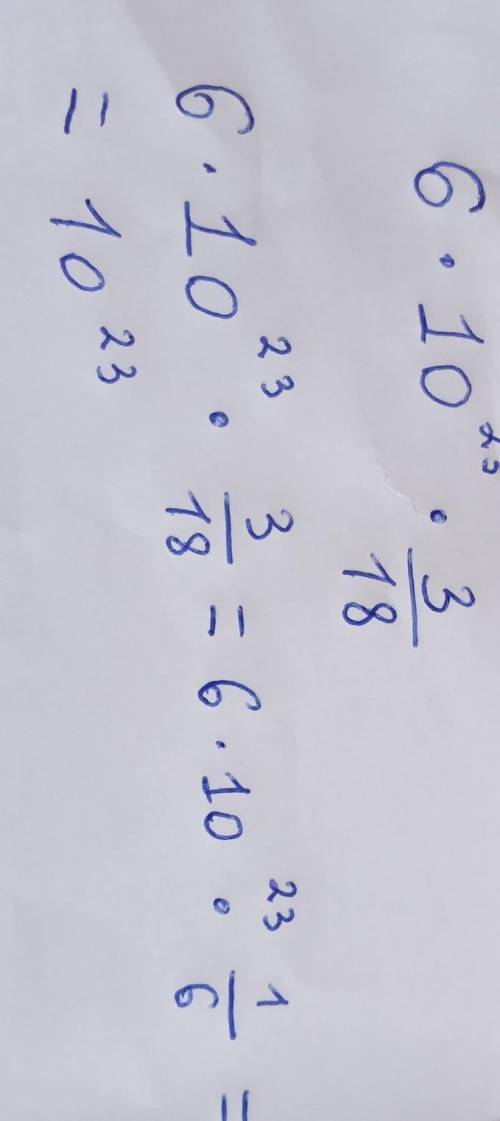 6 · 10²³ · 3/18
6 · 10²³ · 3/18 = 6 · 10²³ · 1/6 =
= 10²³